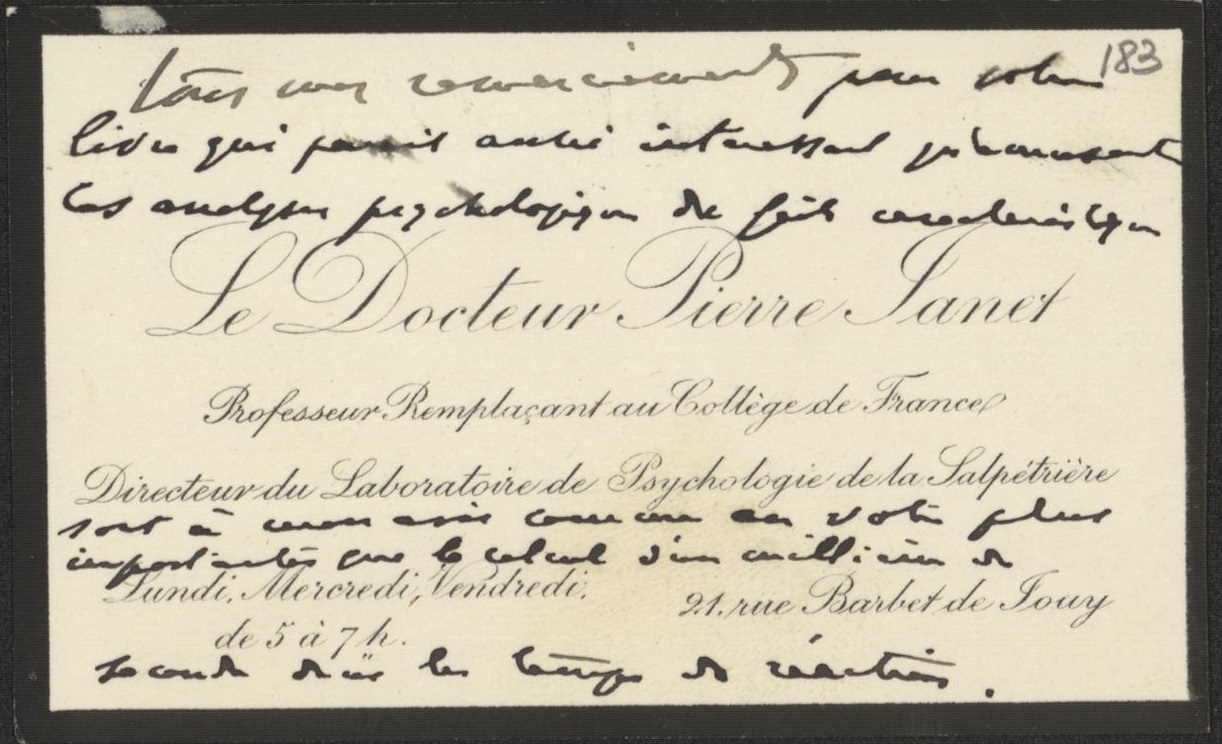 183
Tous mes remerciements pour votre
livre qui parait aussi intéressant
les analyses psychologiques de faits caractéristiques
Le Docteur Pierre Janet
Professeur Remplaçant au Collège de France
Directeur du Laboratoire de Psychologie de la Salpêtrière
sont à mon avis comme au votre plus
importantes que le calcul d'un millième de
Lundi, Mercredi, Vendredi,
de 5 à 7 h.
21. rue Barbet de Jouy
seconde dans les temps de réaction.